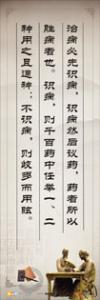 治病必先识病，识病然后议药，药者所以
胜病者也。识病，则千百药中任举一、二
种用之且通神；不识病，则歧多而用眩。